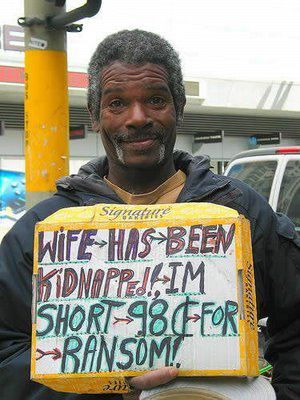 Signature
BAKERIES
WiFE→HAS→BEEN
KiDNAPPED!!→I'M
SHORT→98¢→FOR
→RANSOM!